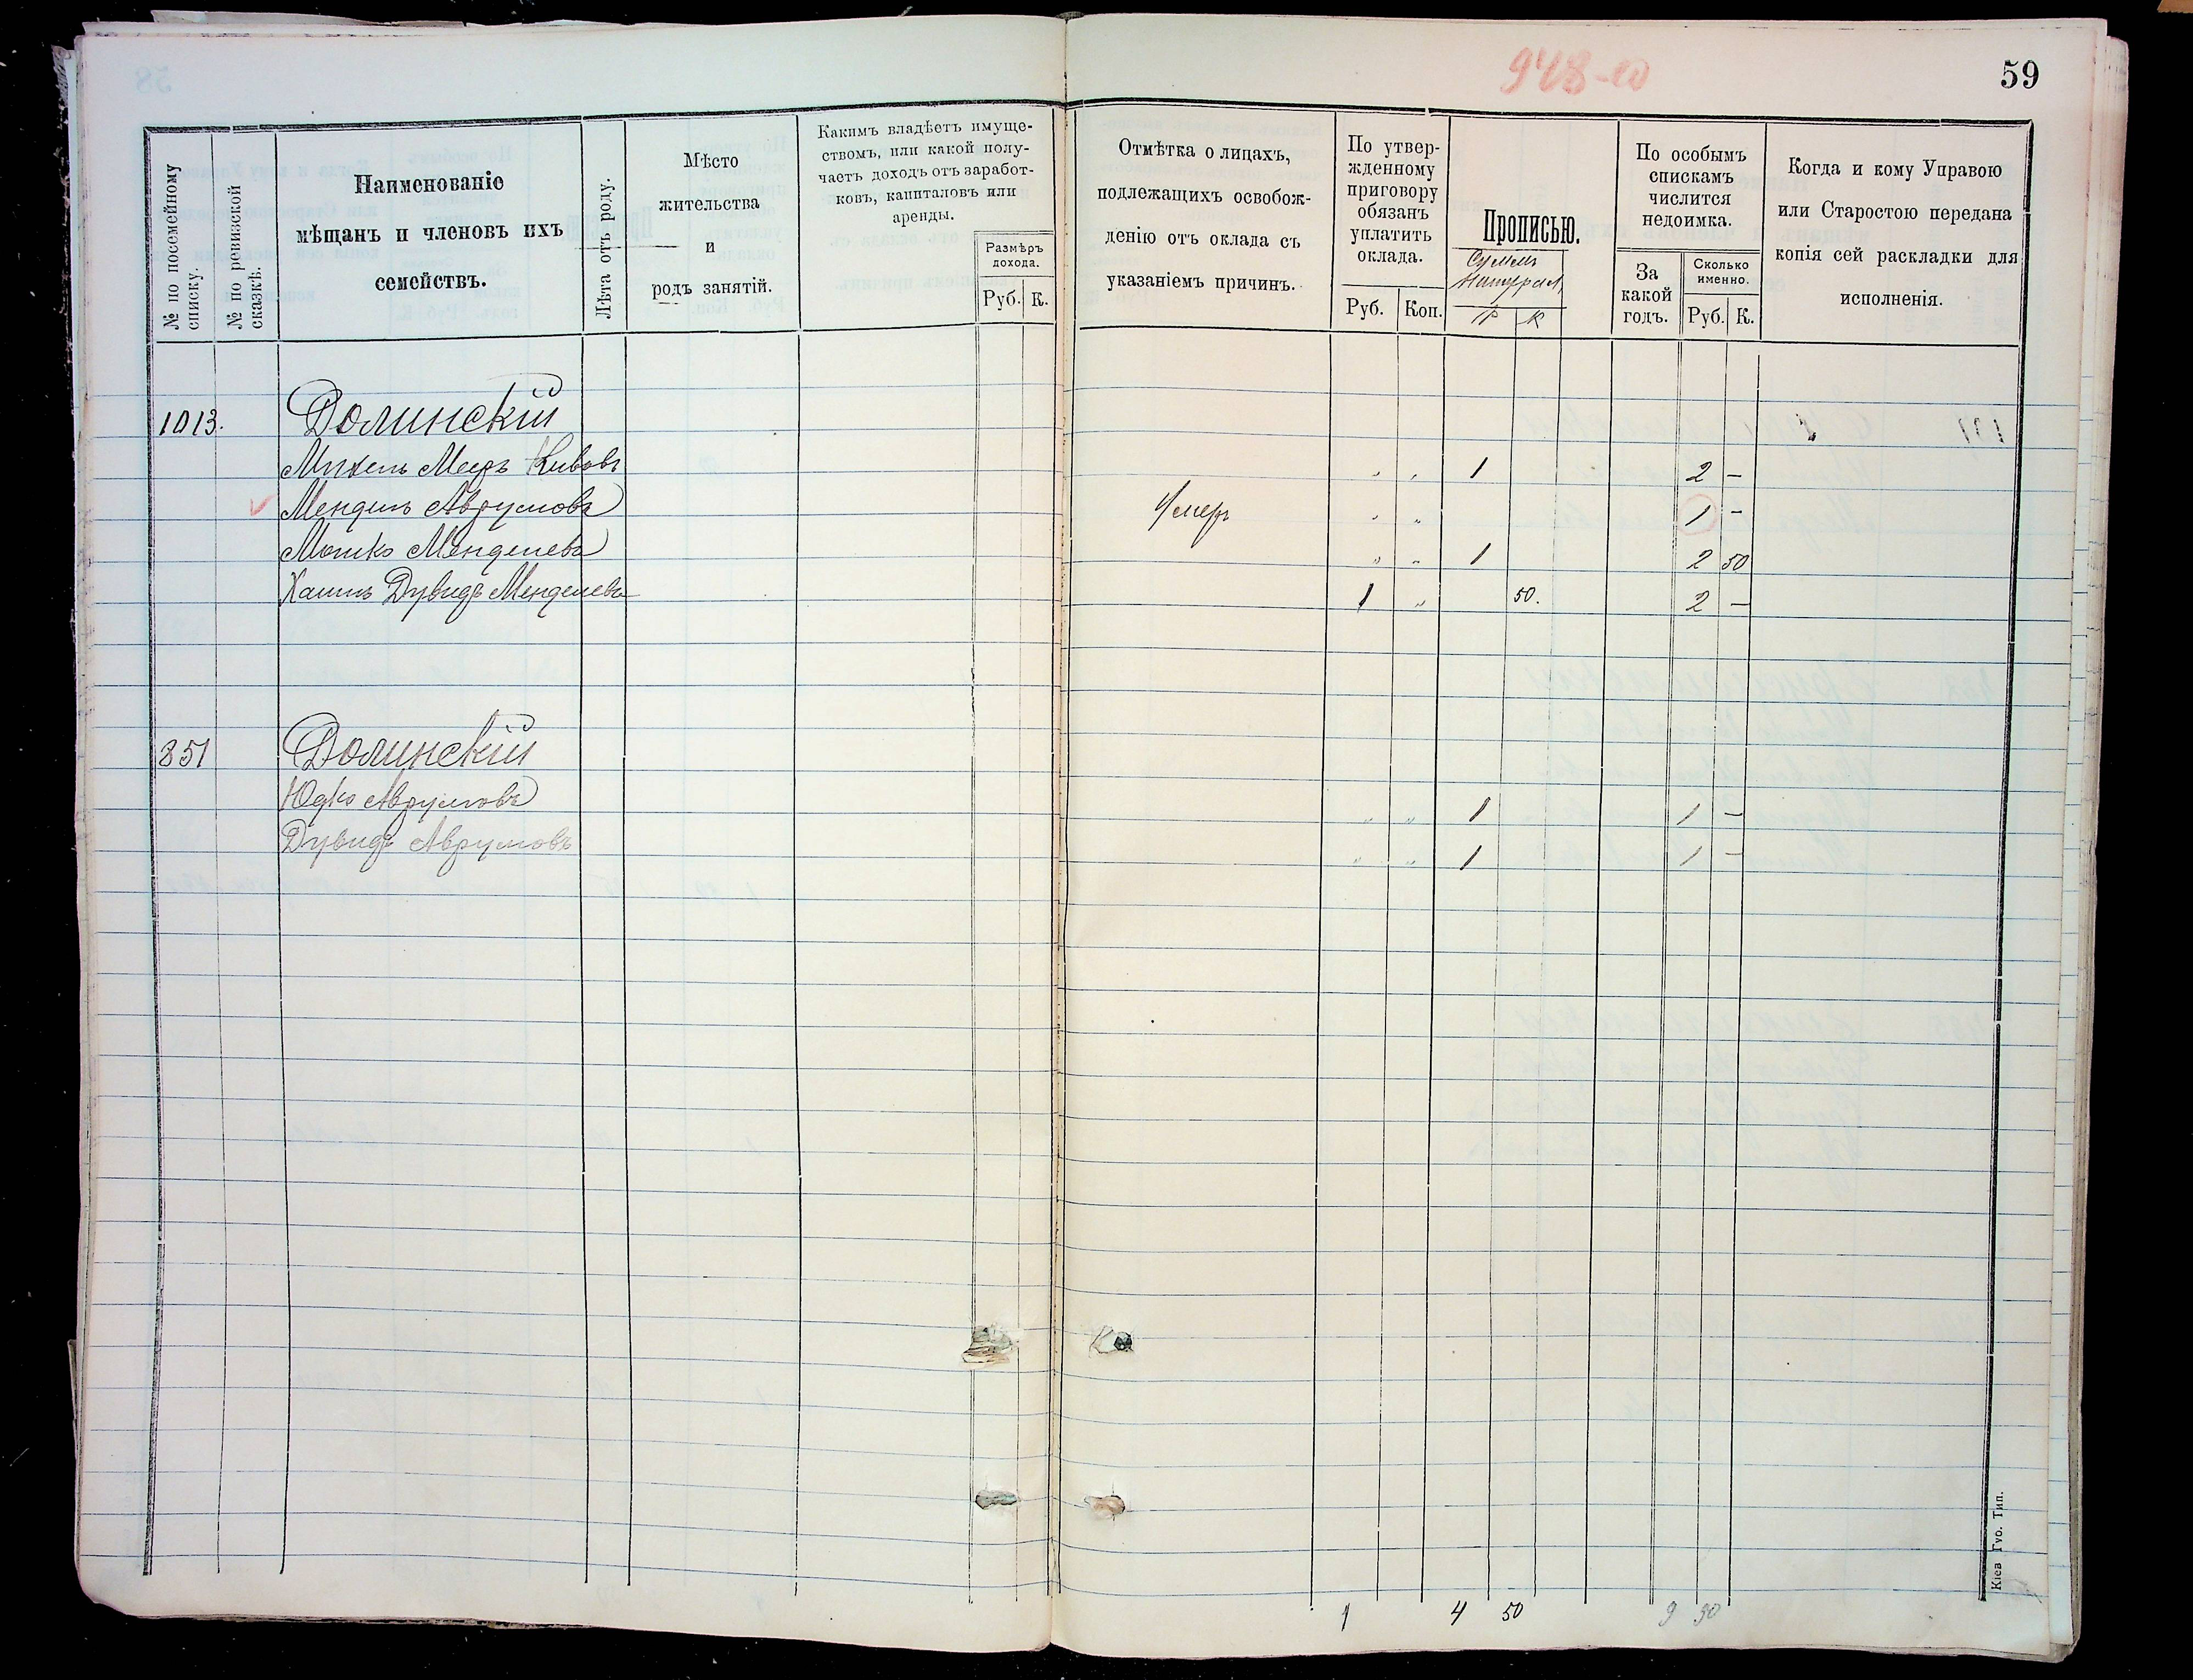 948-10
59
№ по посемейному списку.
№ по ревизской сказкѣ.
Наименованіе
мѣщанъ и членовъ ихъ
семействъ.
Лѣта отъ роду.
Мѣсто
жительства
и
родъ занятій.
Какимъ владѣетъ имуще-
ствомъ, или какой полу-
чаетъ доходъ отъ заработ-
ковъ, капиталовъ или
аренды.
Размѣръ
дохода.
Руб. К.
Отмѣтка о лицахъ,
подлежащихъ освобож-
денію отъ оклада съ
указаніемъ причинъ.
По утвер-
жденному
приговору
обязанъ
уплатить
оклада.
Руб. Коп.
Прописью.
Р К
По особымъ
спискамъ
числится
недоимка.
За
какой
годъ.
Сколько
именно.
Руб. К.
Когда и кому Управою
или Старостою передана
копія сей раскладки для
исполненія.
1013. Долинскій
Михель Мееръ Кивовъ " " 1 2 —
Мендель Аврумовъ Умеръ " " 1 —
Мошко Менделевъ " " 1 2 50
Хаимъ Дувидъ Менделевъ 1 " 50. 2 —
851 Долинскій
Юдко Аврумовъ " " 1 1 —
Дувидъ Аврумовъ " " 1 1 —
1 4 50 9 50
Кіев Губ. Тип.